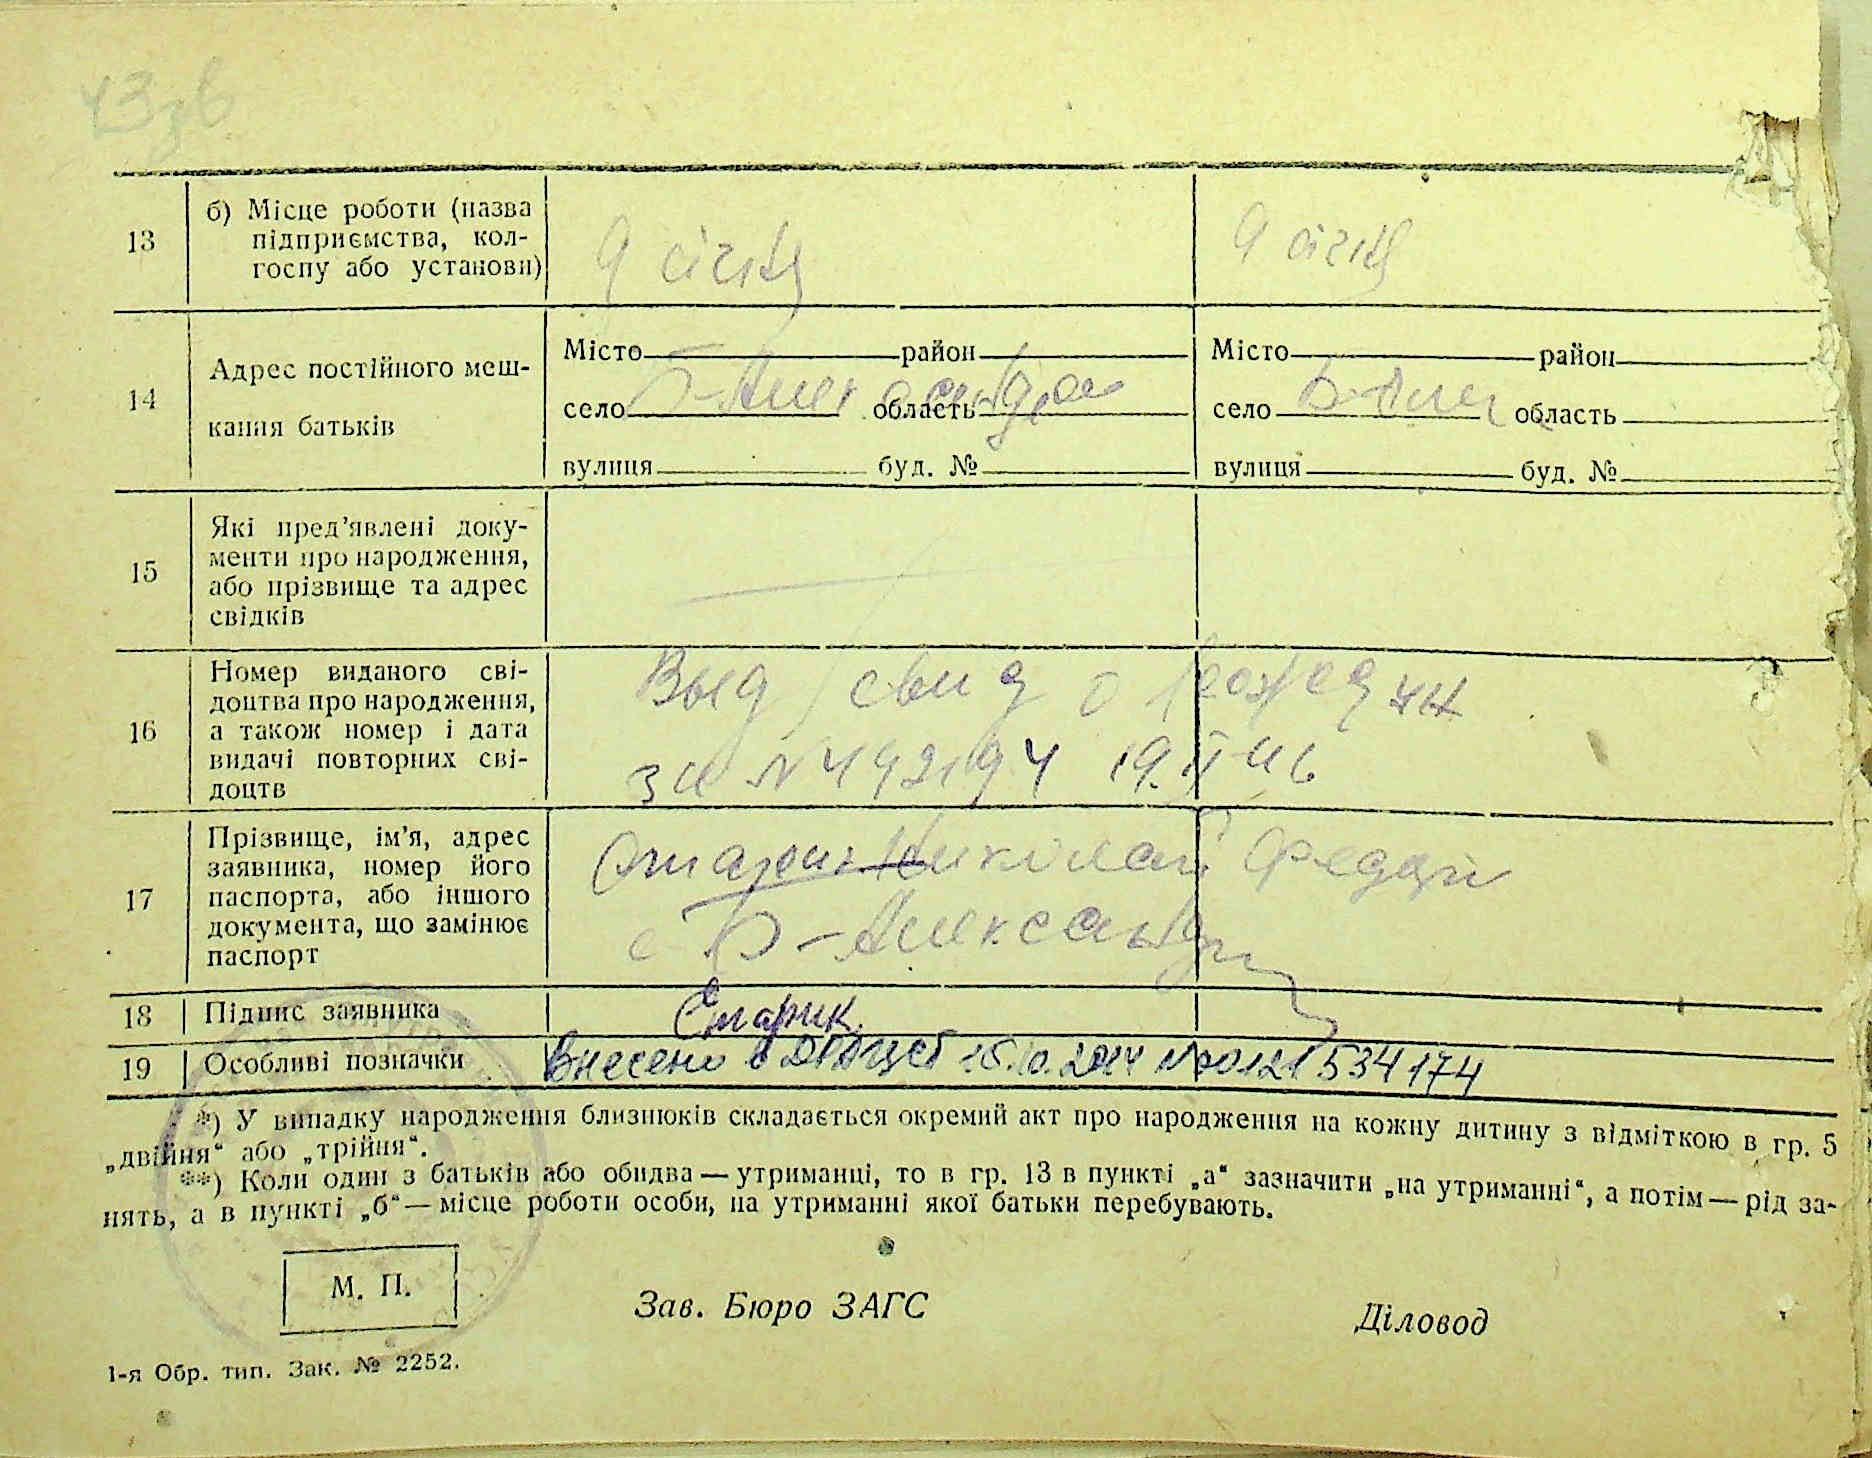 13
б) Місце роботи (назва
підприємства, кол-
госпу або установи)
9 січня
9 січня
14
Адрес постійного меш-
кання батьків
Місто район
село Б-Александров область
вулиця буд. №
Місто район
село Б-Алек область
вулиця буд. №
15
Які пред’явлені доку-
менти про народження,
або прізвище та адрес
свідків
16
Номер виданого сві-
доцтва про народження,
а також номер і дата
видачі повторних сві-
доцтв
Выд свид о рожден
за № 492194 19.
17
Прізвище, ім’я, адрес
заявника, номер його
паспорта, або іншого
документа, що замінює
паспорт
Николай
с Б-Александр
18
Підпис заявника
Старик
19
Особливі позначки
Внесено в 2014 № 00121534174
*) У випадку народження близнюків складається окремий акт про народження на кожну дитину з відміткою в гр. 5
„двійня“ або „трійня“.
**) Коли один з батьків або обидва — утриманці, то в гр. 13 в пункті „а“ зазначити „на утриманні“, а потім — рід за-
нять, а в пункті „б“ — місце роботи особи, на утриманні якої батьки перебувають.
М. П.
Зав. Бюро ЗАГС
Діловод
1-я Обр. тип. Зак. № 2252.